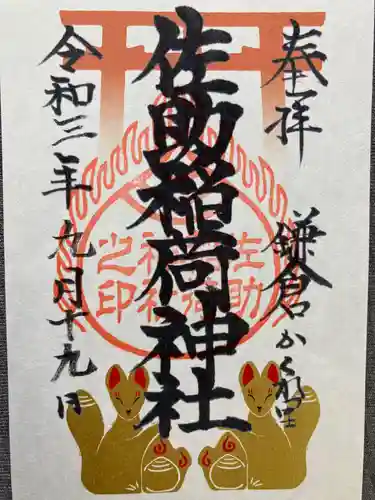 奉拝
鎌倉かくれ里
佐助稲荷神社
令和三年九月十九日
佐助稲荷神社之印